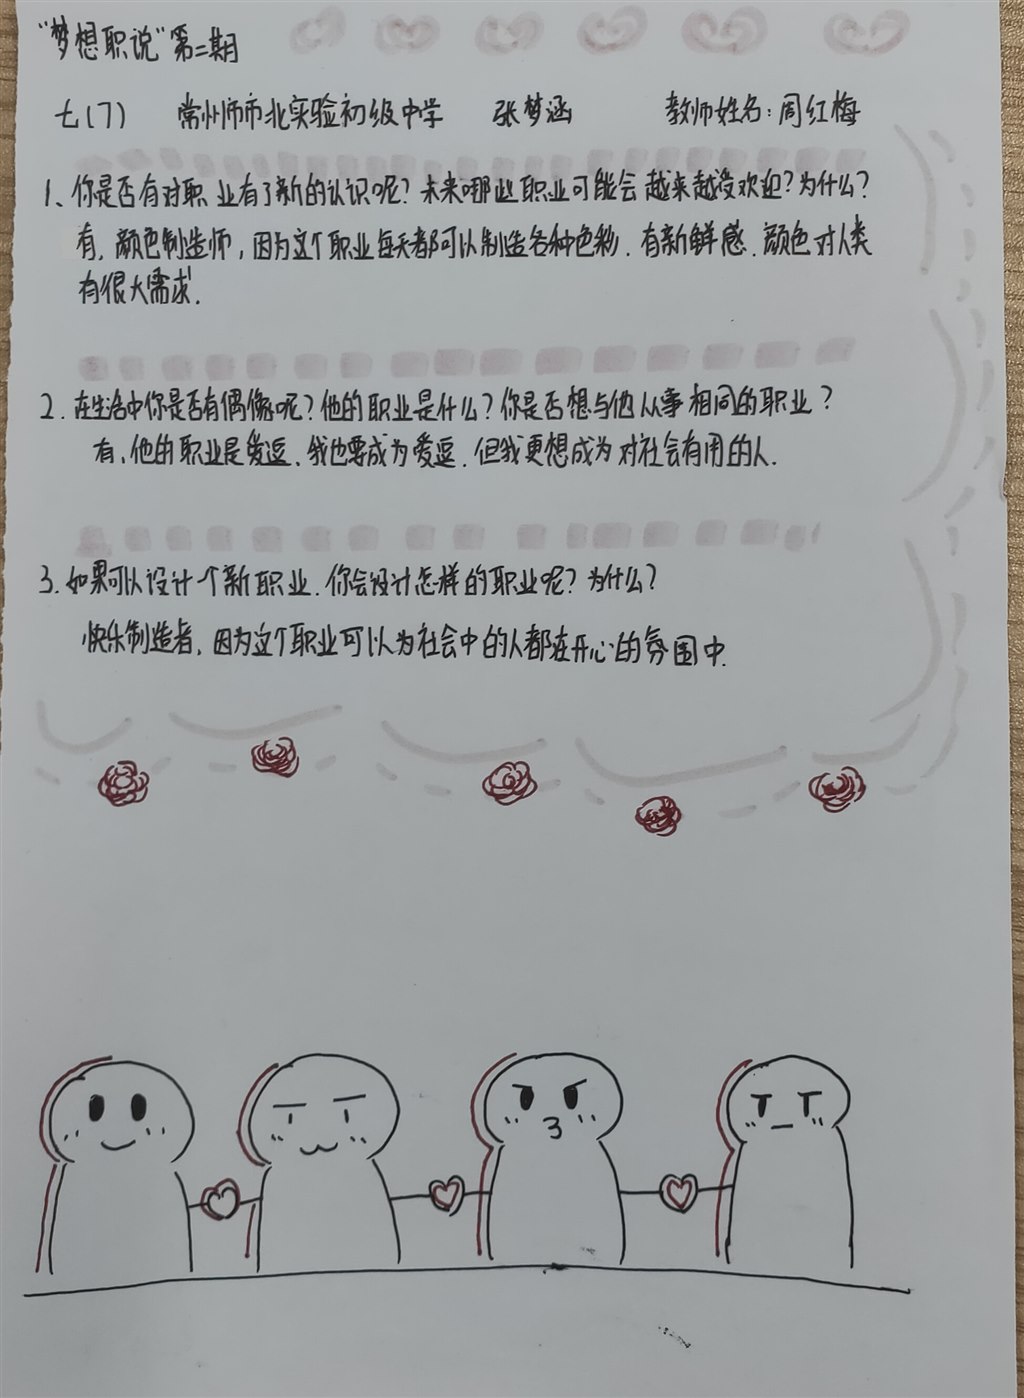 “梦想职说”第二期
七(7) 常州师市北实验初级中学 张梦涵 教师姓名:周红梅
1、你是否有对职业有了新的认识呢?未来哪些职业可能会越来越受欢迎?为什么?
有,颜色制造师,因为这个职业每天都可以制造各种色彩.有新鲜感.颜色对人类
有很大需求.
2.在生活中你是否有偶像呢?他的职业是什么?你是否想与他从事相同的职业?
有,他的职业是爱逗.我也要成为爱逗.但我更想成为对社会有用的人.
3.如果可以设计一个新职业.你会设计怎样的职业呢?为什么?
快乐制造者,因为这个职业可以为社会中的人都在开心的氛围中.